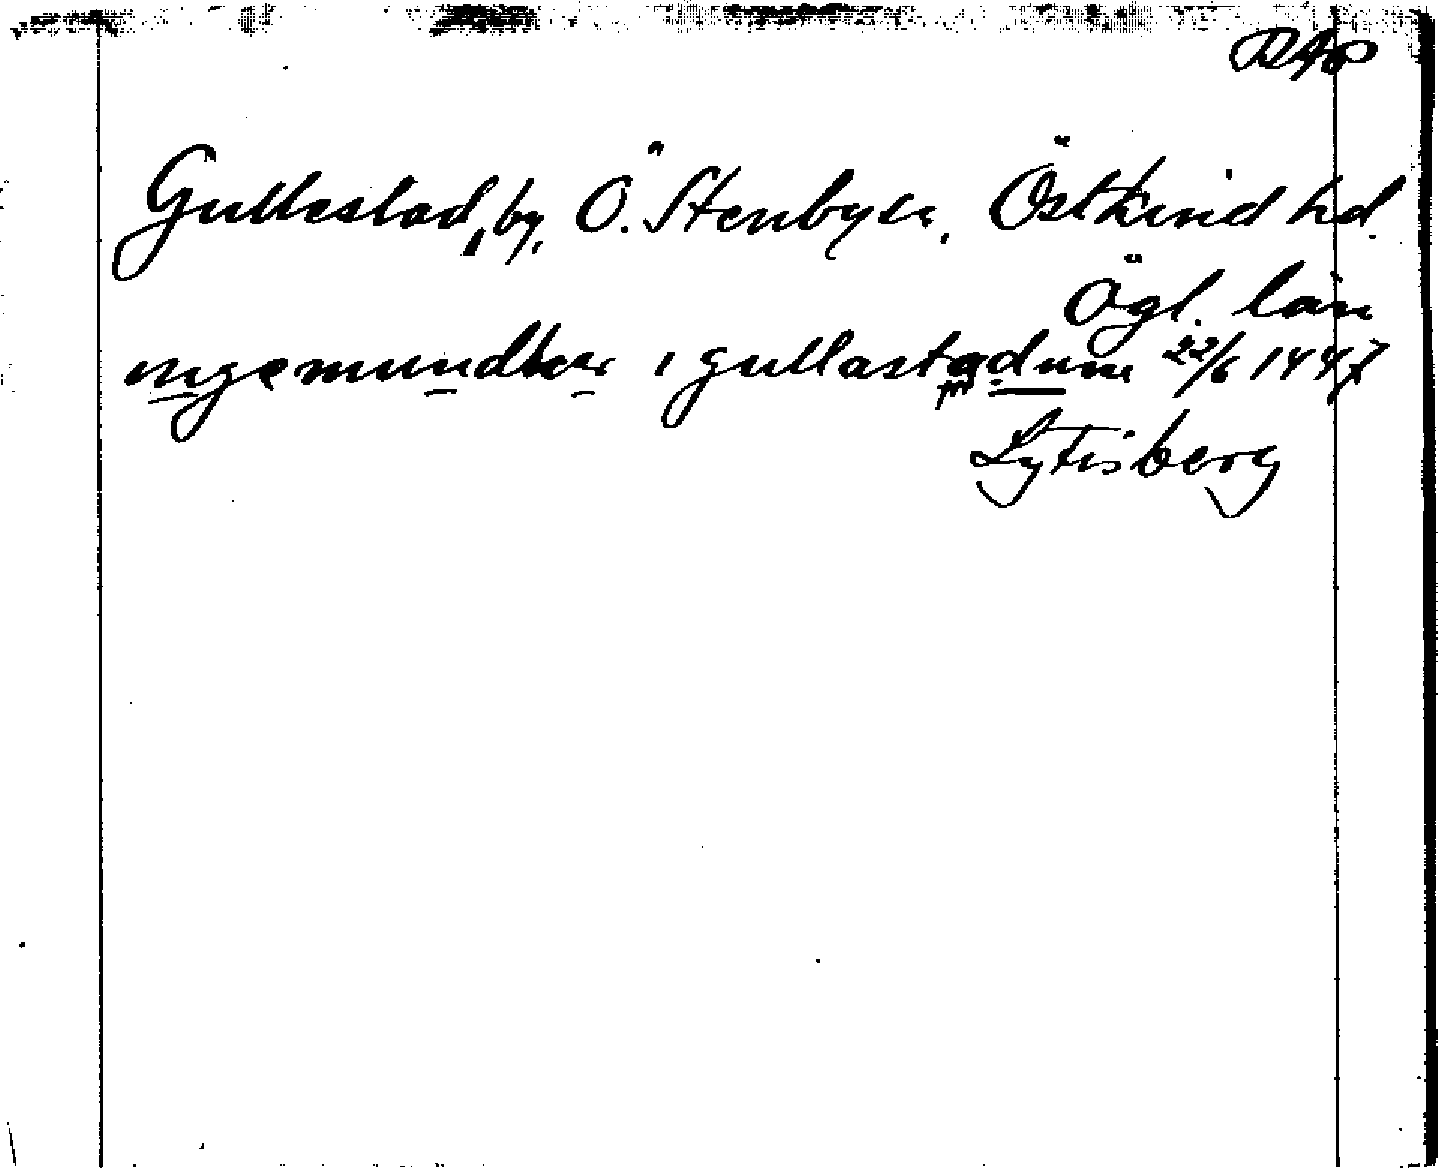 Gullestad, by, Ö. Stenby sn, Östkind hd.
Ögl. län
ingemundher i gullastadum 22/6 1447
Lytisberg